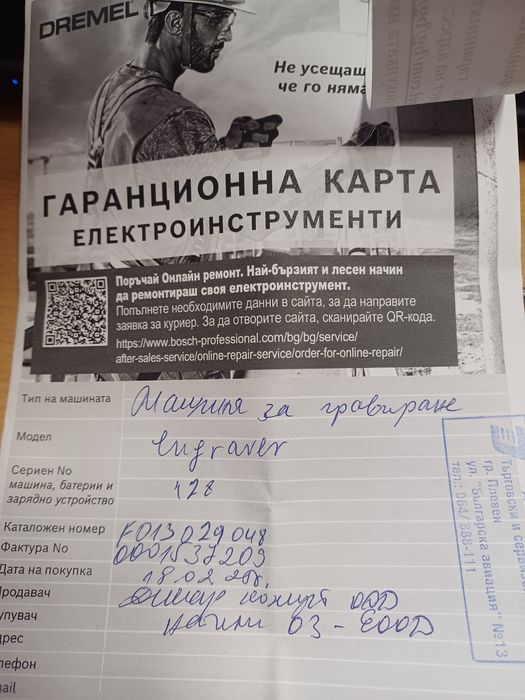 DREMEL
Не усещаш
че го няма
ГАРАНЦИОННА КАРТА
ЕЛЕКТРОИНСТРУМЕНТИ
Поръчай Онлайн ремонт. Най-бързият и лесен начин
да ремонтираш своя електроинструмент.
Попълнете необходимите данни в сайта, за да направите
заявка за куриер. За да отворите сайта, сканирайте QR-кода.
https://www.bosch-professional.com/bg/bg/service/
after-sales-service/online-repair-service/order-for-online-repair/
Тип на машината Машина за гравиране
Модел Engraver
Сериен No
машина, батерии и
зарядно устройство
428
Каталожен номер F013029048
Фактура No 0001537209
Дата на покупка 18.02
родавач ООД
упувач 03 - ЕООД
рес
лефон
mail
Търговски и серви
гр. Плевен
ул. "Българска авиация" №13
тел.: 064/ 888-111